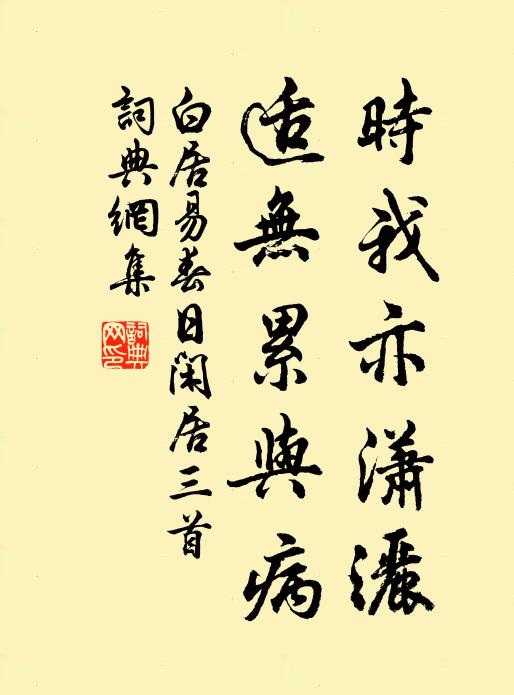 時我亦瀟灑
适無累與病
白居易春日閑居三首
詞典網集
詞典網印